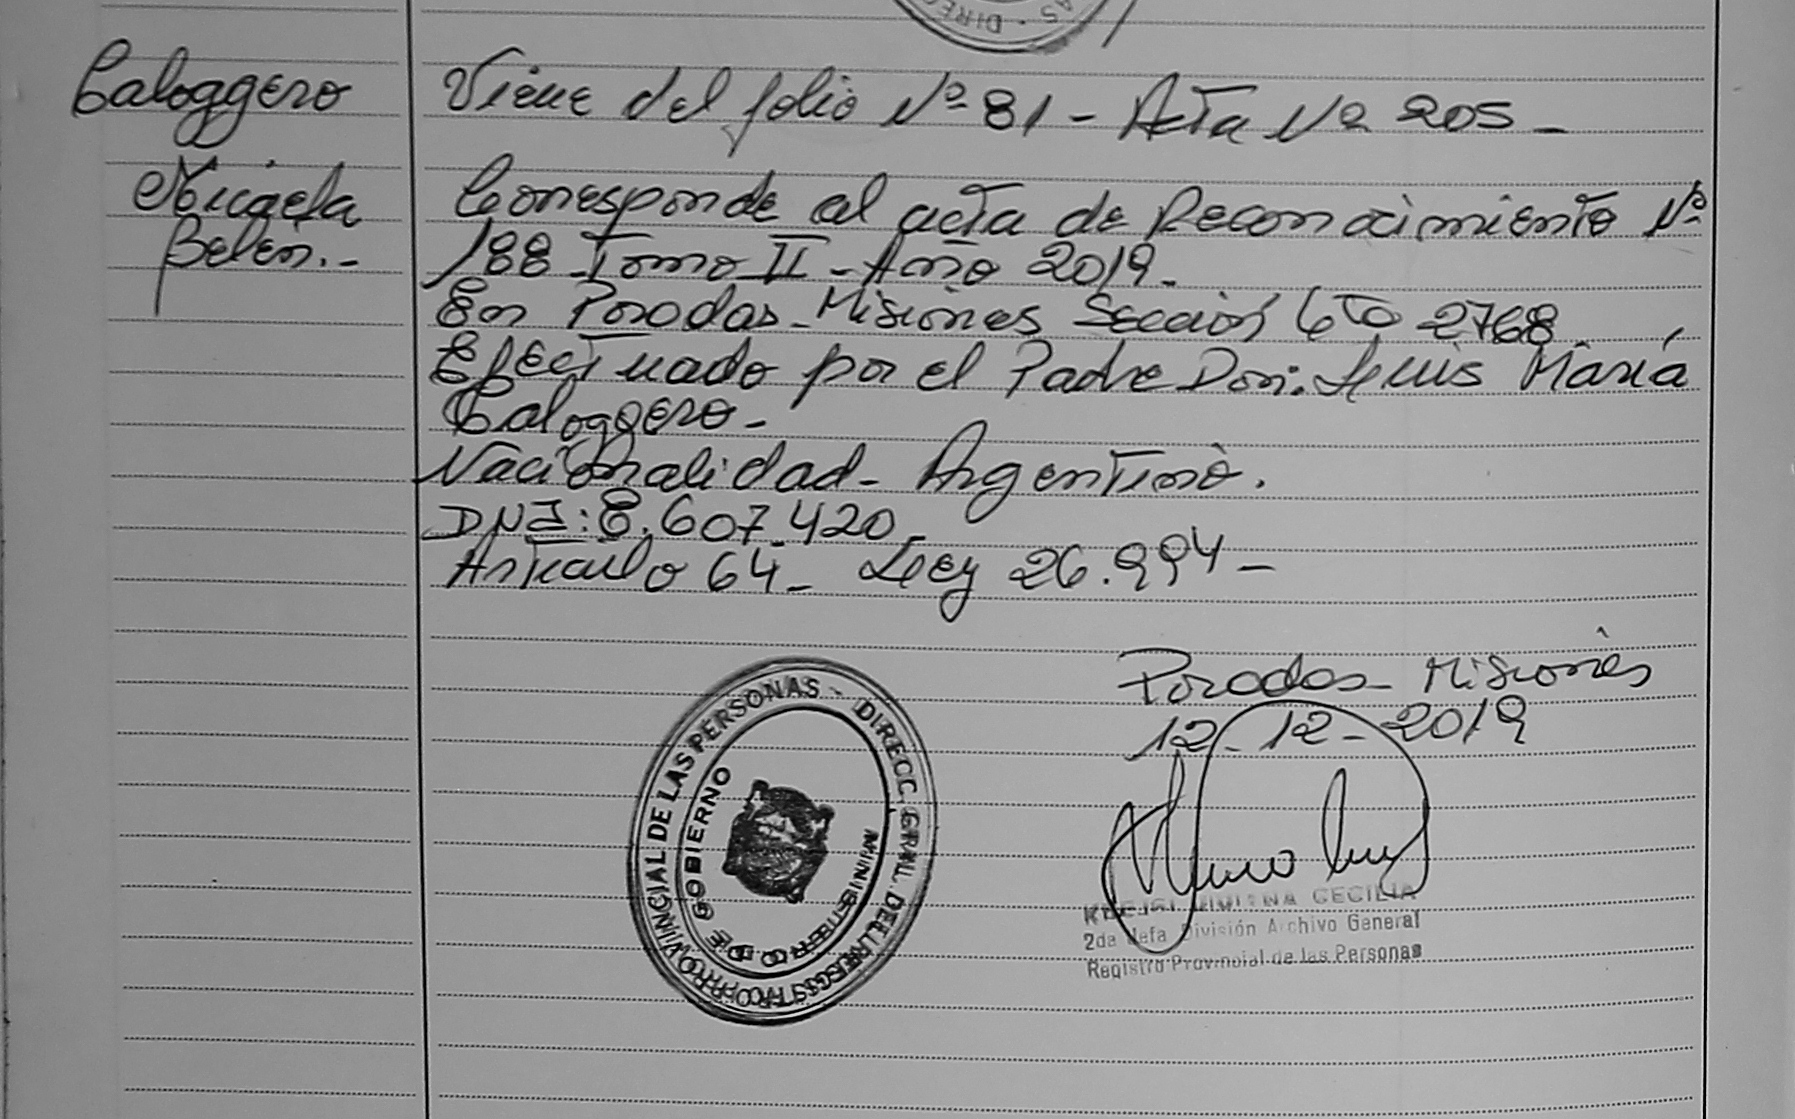 DIREC
Caloggero
Viene del folio Nº 81 - Acta Nº 205 -
Micaela
Belén.-
Corresponde al acta de Reconocimiento Nº
188 Tomo II - Año 2019.
En Posadas - Misiones Sección 6to 2768
Efectuado por el Padre Don: Luis María
Caloggero -
Nacionalidad - Argentino.
DNI: 8.607.420
Artículo 64 - Ley 26.994 -
Posadas - Misiones
12-12-2019
DIRECC. GRAL. DEL REGISTRO PROVINCIAL DE LAS PERSONAS -
MINISTERIO DE GOBIERNO
CECILIA
2da Jefa División Archivo General
Registro Provincial de las Personas